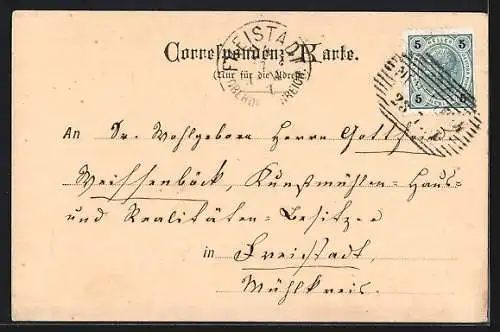 Correspondenz-Karte.
(Nur für die Adresse.)
FREISTADT
5 HELLER 5
5 5
25
An Sr. Wohlgeboren Herrn Gotthard
Weissenböck, Kunstmühlen- Haus-
und Realitäten- Besitzer
in Freistadt,
Mühlkreis.